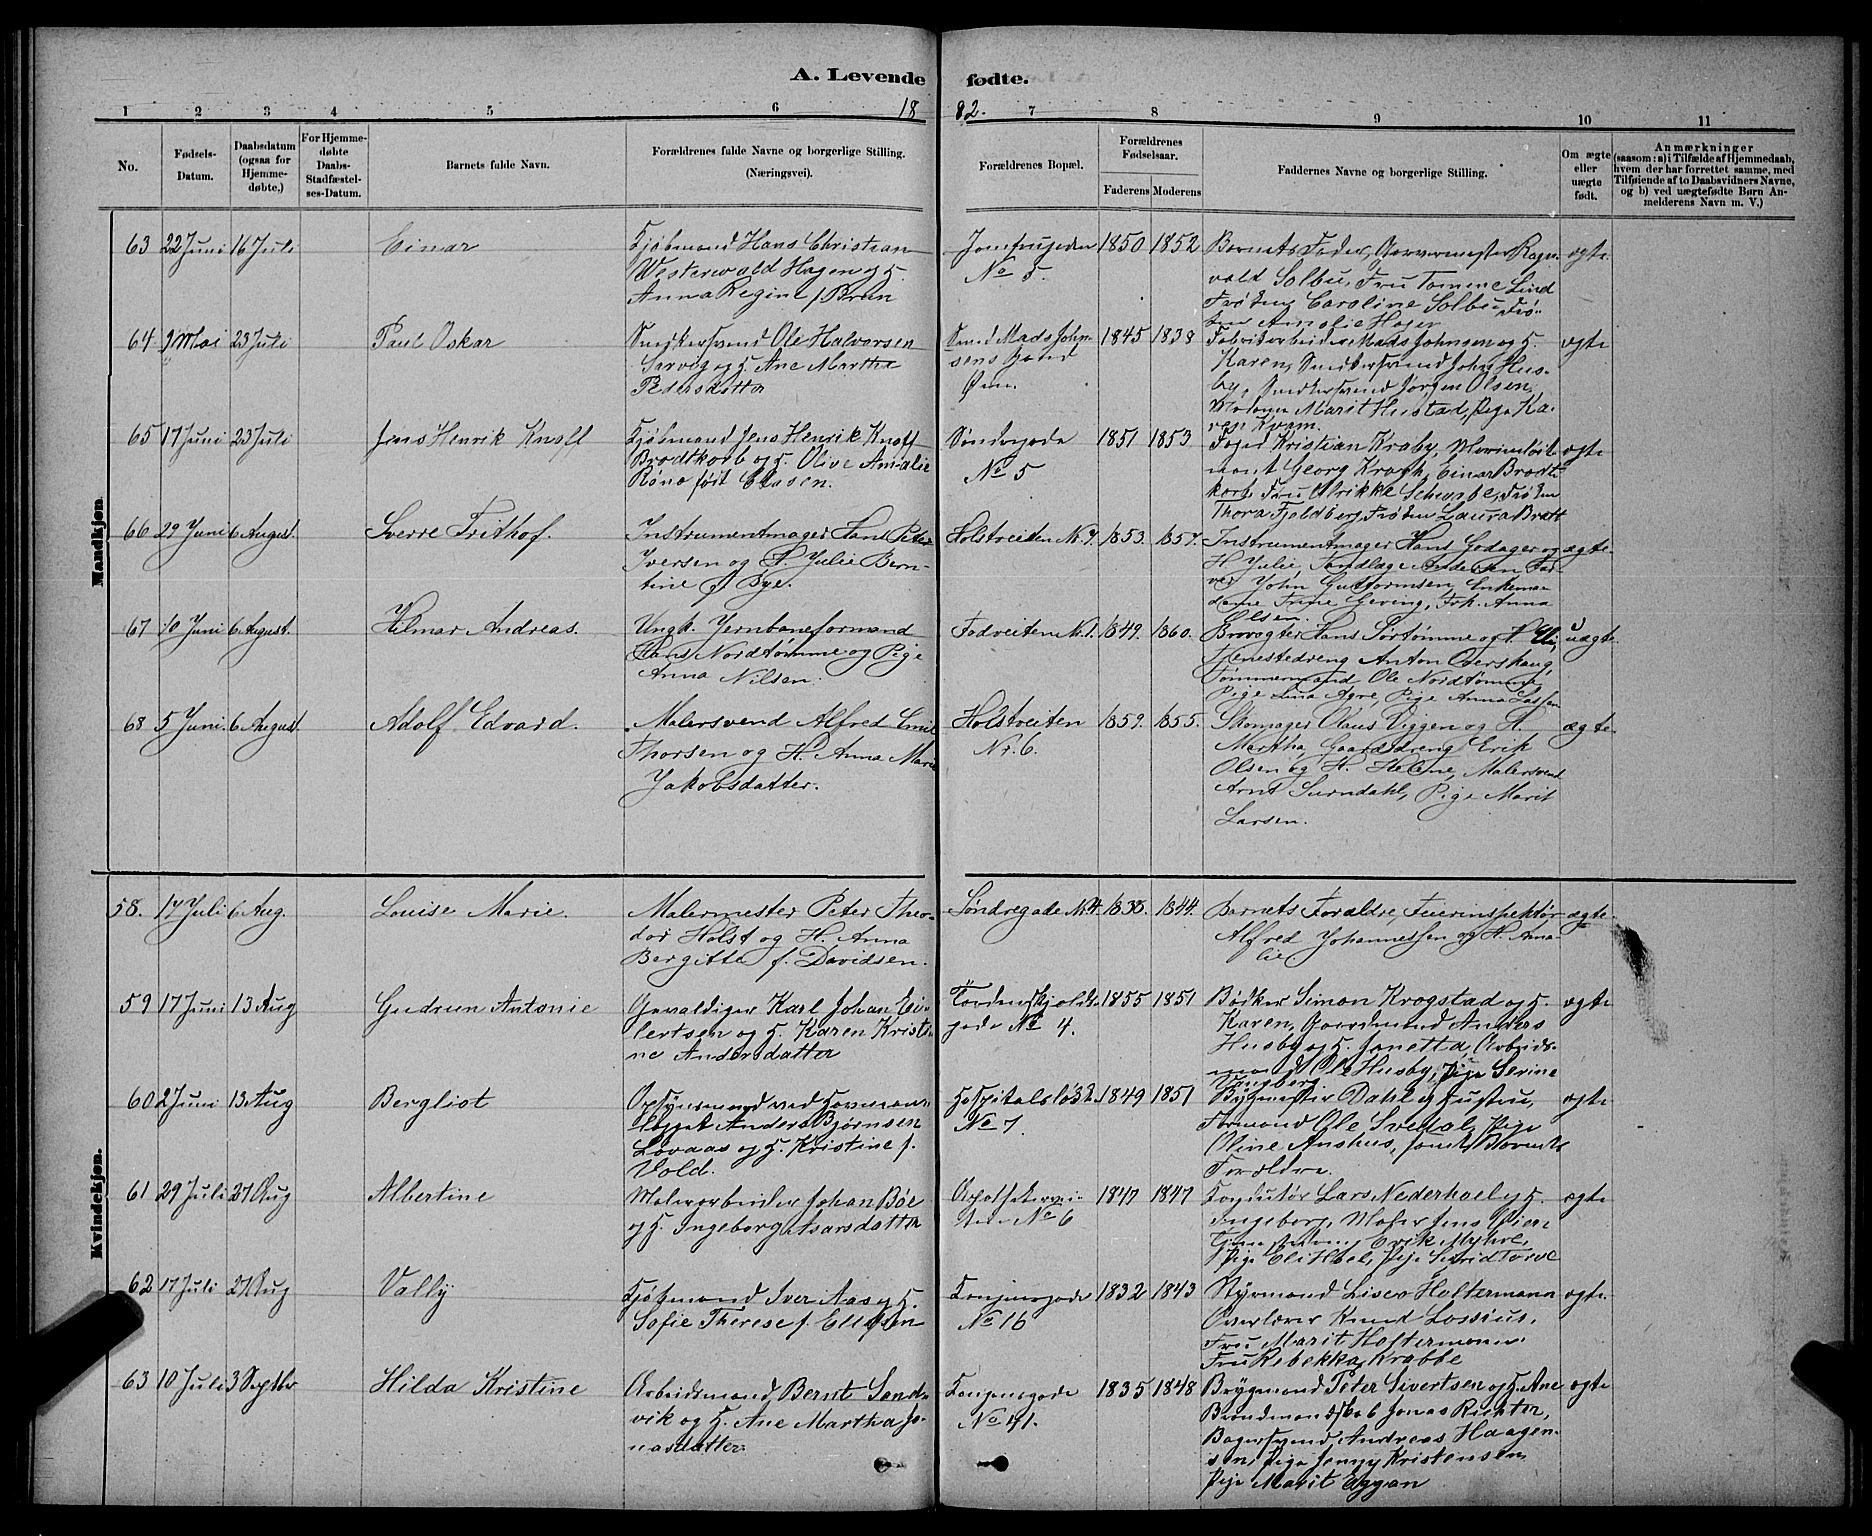 A. Levende fødte.
1882.
1 2 3 4 5 6 7 8 9 10 11
No.
Fødsels-
Datum.
Daabsdatum
(ogsaa for
Hjemme-
døbte,)
For Hjemme-
døbte
Daabs-
Stadfæstel-
ses-Datum.
Barnets fulde Navn.
Forældrenes fulde Navne og borgerlige Stilling.
(Næringsvei).
Forældrenes Bopæl.
Forældrenes
Fødselsaar.
Faderens Moderens
Faddernes Navne og borgerlige Stilling.
Om ægte
eller
uægte
født.
Anmærkninger
(saasom: a) i Tilfælde af Hjemmedaab,
hvem der har forrettet samme, med
Tilføiende af to Daabsvidners Navne,
og b) ved uægtefødte Børn An-
melderens Navn m. V.)
Mandkjøn
63 22 Juni 16 Juli
Einar
Kjøbmand Hans Christian
Westerwald Hagen og H.
Anna Regine f. Brun
Jomfrugaden
No 5.
1850 1852
Barnets Fader, Garvermester Ragn-
vald Solbu, Fru Tomine Lind
Frøken Caroline Solbu, Frø-
ken Amalie Hagen
ægte
64 9 Mai 23 Juli
Paul Oskar
Snedkersvend Ole Halvorsen
Sarvig og H. Ane Martha
Pedersdatter
Smed Mads John-
sens Gaard
Øen.
1845 1838
Fabrikarbeider Mads Johnsen og H.
Karen, Snedkersvend John Hus-
by, Snedkersvend Jørgen Olsen,
Madam Marit Hustad, Pige Ka-
ren Kvam.
ægte
65 17 Juni 23 Juli
Jens Henrik Knoff
Kjøbmand Jens Henrik Knoff
Brodtkorb og H. Olive Amalie
Røno født Clasen.
Søndregade
No 5
1851 1853
Foged Kristian Kraby, Marineløit-
nant Georg Kragh, Einar Brodt-
korb, Fru Ulrikke Scharbe, Frøken
Thora Fjeldberg, Frøken Laura Bratt
ægte
66 29 Juni 6 August.
Sverre Frithof.
Instrumentmager Hans Peter
Iversen og H. Julie Bern-
tine f Bye.
Holstveiten Nr. 7.
1853. 1857.
Instrumentmager Hans Godager og
H Julie, Tandlæge Andersen Far-
ver John Guttormsen, Enkema-
dame Trine Geving, Frk. Anna
Olsen.
ægte.
67 10 Juni 6 August.
Hilmar Andreas.
Ungk. Jernbaneformand
Hans Nordtømme og Pige
Anna Nilsen.
Fodveiten Nr. 1.
1849. 1860.
Brovogter Hans Sørtømme og H Eli,
Tjenestedreng Anton Overskaug,
Tømmermand Ole Nordtømme
Pige Lina Agre, Pige Anna Larsen
uægte.
68 5 Juni. 6 August.
Adolf Edvard.
Malersvend Alfred Emil
Thorsen og H. Anna Marie
Jakobsdatter.
Holstveiten
Nr. 6.
1859. 1855.
Skomager Olaus Viggen og H.
Martha, Gaardsdreng Erik
Olsen og H. Helene, Malersvend
Arnt Surndahl, Pige Marit
Larsen.
ægte.
Kvindekjøn.
58. 17 Juli 6 Aug.
Louise Marie.
Malermester Peter Theo-
dor Holst og H. Anna
Bergitte f. Davidsen.
Søndregade Nr. 4.
1838. 1844.
Barnets Forældre, Feierinspektør
Alfred Johannessen og H. Ama-
lie
ægte.
59 17 Juni 13 Aug
Gudrun Antonie
Gevaldiger Karl Johan Ei-
lertsen og H. Karen Kristi-
ne Andersdatter
Tordenskjolds-
gade No 4.
1855 1851
Bødker Simon Krogstad og H.
Karen, Gaardmand Anders
Husby og H. Jonetta, Arbeids-
mand Ole Husby, Pige Sevine
Vangberg.
ægte
60 2 Juni 13 Aug
Bergliot
Opsynsmand ved Havnean-
lægget Anders Bjørnsen
Lovaas og H. Kristine f.
Vold.
Hospitalsløkk.
No 7.
1849 1851
Bygmester Dahl og Hustru,
Formand Ole Svedal, Pige
Oline Aushus, samt Barnets
Forældre.
ægte
61 29 Juli 27 Aug
Albertine
Malerarbeider Johan Bøe
og H. Ingeborg Asarsdatter
Apothekervei-
ten No 6
1847 1847
Konduktør Lars Nederhoel og H.
Ingeborg, Maler Jens Øien
Tjenestedreng Erik Myhre,
Pige Eli Hoel, Pige Sigrid Torve
ægte
62 17 Juli 27 Aug
Vally
Kjøbmand Iver Aas og H.
Sofie Therese f. Ellefsen
Kongensgade
No 16
1832 1843
Styrmand Liseo Holtermann
Overlærer Knud Lossius,
Fru Marit Holtermann
Fru Rebekka Krabbe
ægte
63 10 Juli 3 Septbr
Hilda Kristine
Arbeidsmand Bernt Sand-
vik og H. Ane Martha Jo-
nasdatter
Kongensgade
No 41.
1835 1848
Brygmand Peter Sivertsen og H. Ane
Brandmandskab Jonas Richter,
Bagersvend Andreas Haagen-
sen, Pige Jenny Kristensen,
Pige Marit Eggan
ægte